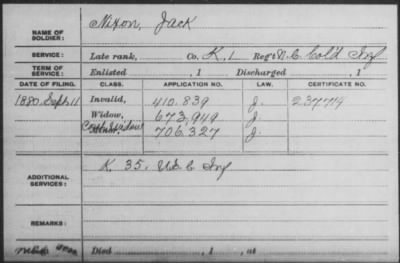 NAME OF SOLDIER: Nixon, Jack
SERVICE: Late rank, Co. K, 1 Reg't N.C. Col'd Inf
TERM OF SERVICE: Enlisted , 1 Discharged , 1
DATE OF FILING. CLASS. APPLICATION NO. LAW. CERTIFICATE NO.
1880 Sept 11 Invalid, 410.839 J.
Widow, 673,949 J.
Minor, 706,327 J.
ADDITIONAL SERVICES: K. 35. U.S.C Inf
REMARKS:
Died , 1 , at